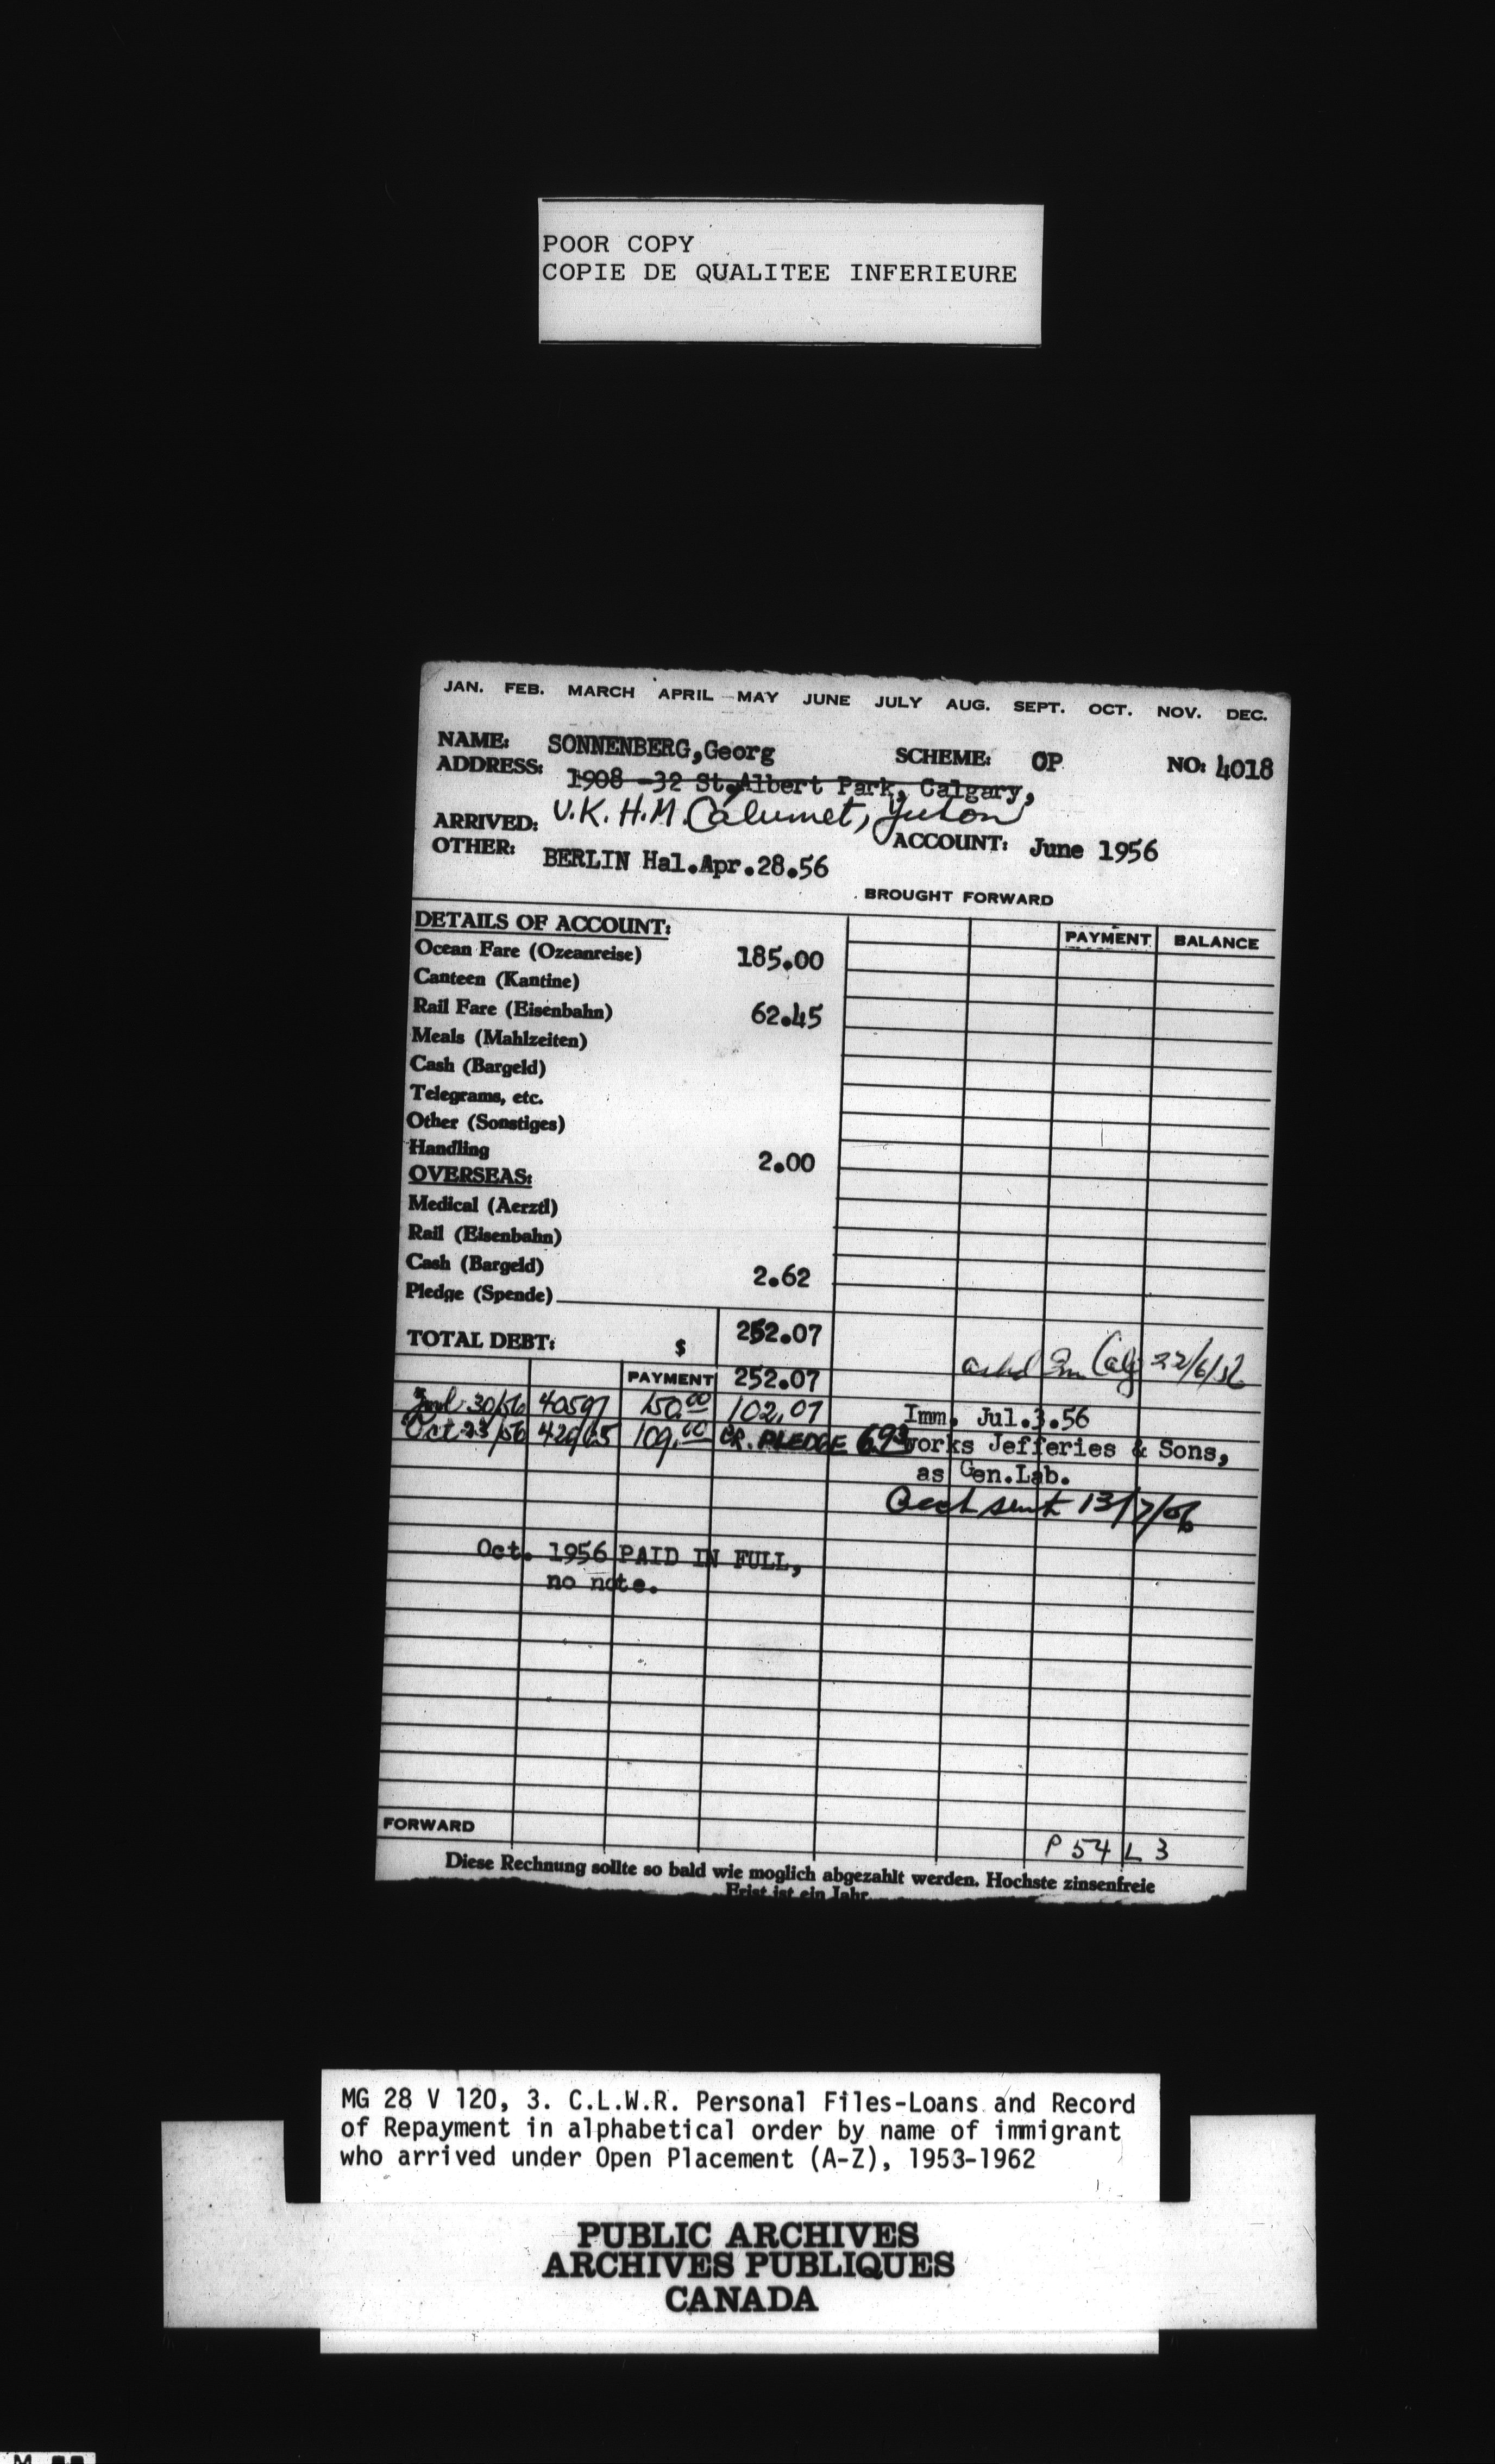 POOR COPY
COPIE DE QUALITEE INFERIEURE
JAN. FEB. MARCH APRIL MAY JUNE JULY AUG. SEPT. OCT. NOV. DEC.
NAME: SONNENBERG,Georg SCHEME: OP NO: 4018
ADDRESS: 1908 -32 St.,Albert Park, Calgary,
U.K.H.M. Calumet, Yukon
ARRIVED: ACCOUNT: June 1956
OTHER: BERLIN Hal.Apr.28.56
BROUGHT FORWARD
DETAILS OF ACCOUNT: PAYMENT BALANCE
Ocean Fare (Ozeanreise) 185.00
Canteen (Kantine)
Rail Fare (Eisenbahn) 62.45
Meals (Mahlzeiten)
Cash (Bargeld)
Telegrams, etc.
Other (Sonstiges)
Handling 2.00
OVERSEAS:
Medical (Aerztl)
Rail (Eisenbahn)
Cash (Bargeld) 2.62
Pledge (Spende)
TOTAL DEBT: $ 252.07
Calg 22/6/56
PAYMENT 252.07
30/56 40597 150.00 102.07 Imm. Jul.3.56
Oct 23/56 426/65 109.00 CR. PLEDGE 693 works Jefferies & Sons,
as Gen.Lab.
sent 13/7/56
Oct. 1956 PAID IN FULL,
no note.
FORWARD
P 54 L 3
Diese Rechnung sollte so bald wie moglich abgezahlt werden. Hochste zinsenfreie
Frist ist ein Jahr
MG 28 V 120, 3. C.L.W.R. Personal Files-Loans and Record
of Repayment in alphabetical order by name of immigrant
who arrived under Open Placement (A-Z), 1953-1962
PUBLIC ARCHIVES
ARCHIVES PUBLIQUES
CANADA